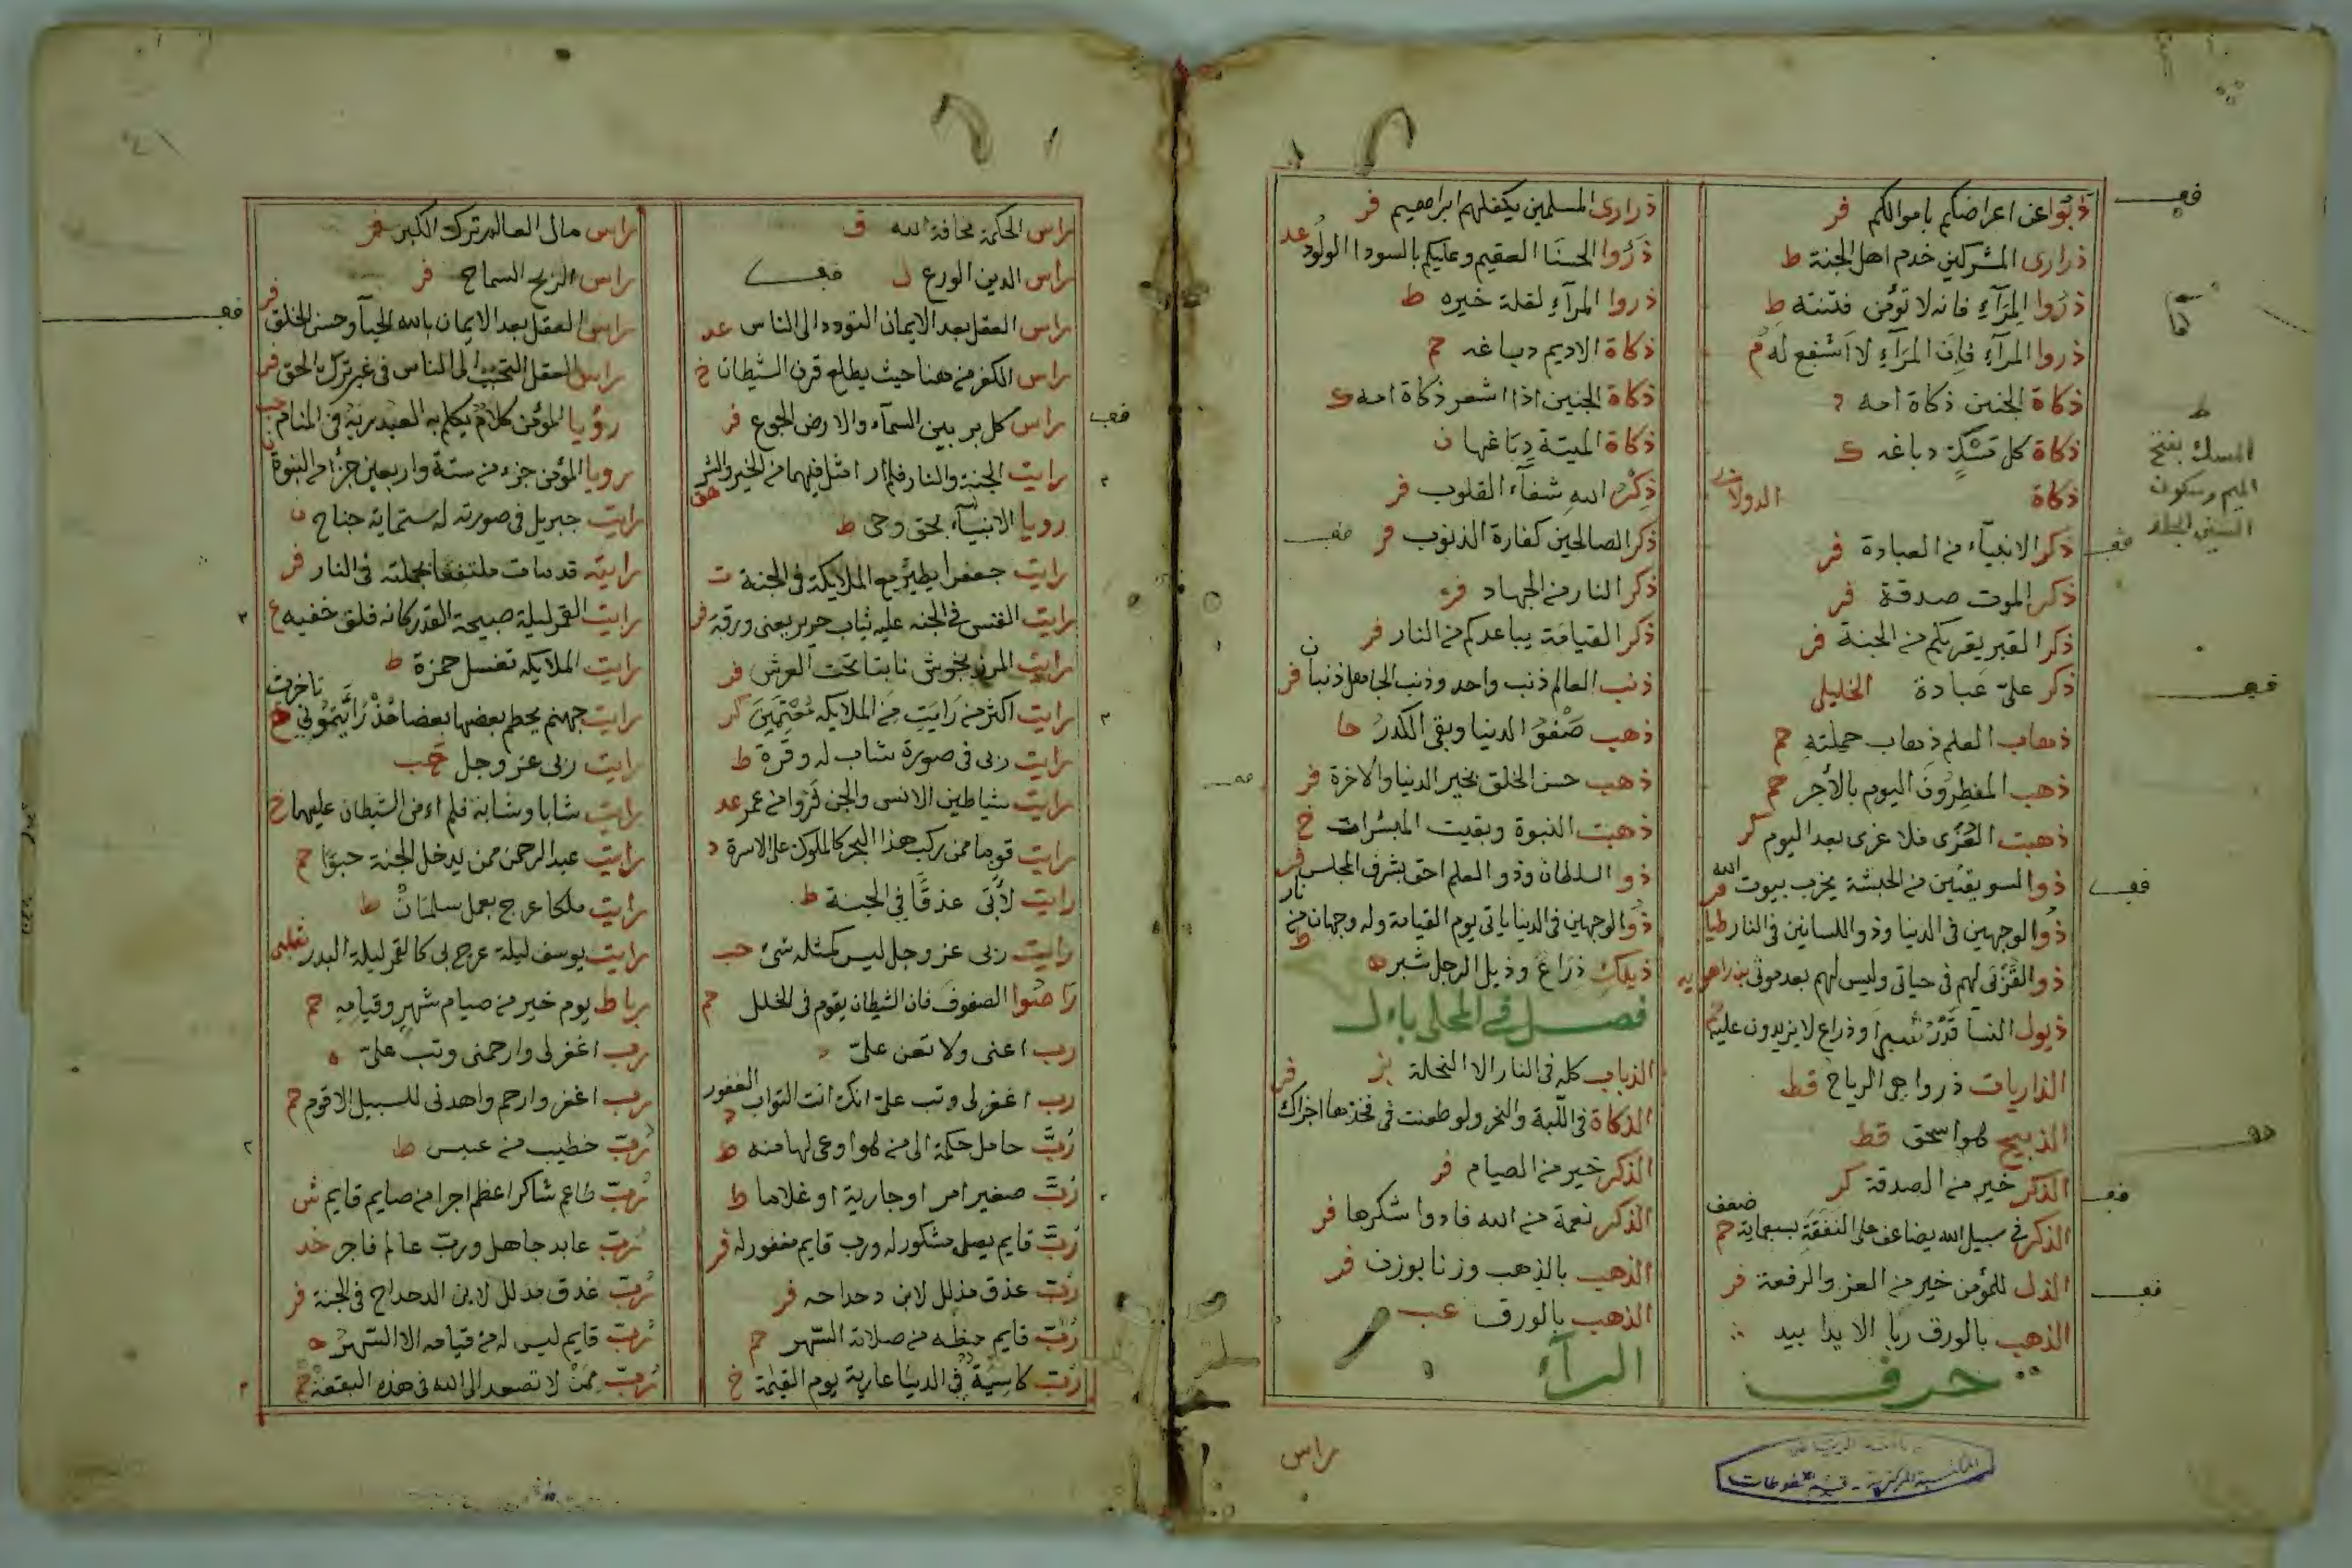 ذبوا عن اعراضكم باموالكم فر
ذرارى المشركين خدم اهل الجنة ط
ذروا المرآء فانه لا تؤمن فتنته ط
ذروا المرآء فإن المرآء لا اشفع له
ذكاة الجنين ذكاة امه د
ذكاة كل مسك دباغه ك
ذكاة الدولابى
ذكر الانبيآء من العبادة فر
ذكر الموت صدقة فر
ذكر القبر يقربكم من الجنة فر
ذكر على عبادة الخليلى
ذهاب العلم ذهاب حملته حم
ذهب المفطرون اليوم بالأجر حم
ذهبت العزى فلا عزى بعد اليوم كر
ذو السويقتين من الحبشة يخرب بيوت الله فر
ذو الوجهين فى الدنيا وذو اللسانين فى النار طيا
ذو القربى لهم فى حياتى وليس لهم بعد موتى بن راهويه
ذيول النسا قدر شبرا وذراع لا يزيدون عليه
الذاريات ذروا هى الرياح قط
الذبيح هو اسحق قط
الذكر خير من الصدقة كر
الذكر فى سبيل الله يضاعف على النفقة بسبعماية ضعف حم
الذل للمؤمن خير من العز والرفعة فر
الذهب بالورق ربا الا يدا بيد
حرف
ذرارى المسلمين يكفلهم ابراهيم فر
ذروا الحسنا العقيم وعليكم بالسودا الولود عد
ذروا المرآء لقلة خيره ط
ذكاة الاديم دباغه حم
ذكاة الجنين اذا اشعر ذكاة امه ك
ذكاة الميتة دباغها ن
ذكر الله شفآء القلوب فر
ذكر الصالحين كفارة الذنوب فر
ذكر النار من الجهاد فر
ذكر القيامة يباعدكم من النار فر
ذنب العالم ذنب واحد وذنب الجاهل ذنبان فر
ذهب صفو الدنيا وبقى الكدر حا
ذهب حسن الخلق بخير الدنيا والاخرة فر
ذهبت النبوة وبقيت المبشرات خ
ذو السلطان وذو العلم احق بشرف المجلس فر
ذو الوجهين فى الدنيا ياتى يوم القيامة وله وجهان من نار ط
ذيلك ذراع وذيل الرجل شبر ه
فصل فى المحلى بال
الذباب كله فى النار الا النحلة بز
الذكاة فى اللبة والنحر ولو طعنت فى فخذها اجزاك فر
الذكر خير من الصيام فر
الذكر نعمة من الله فادوا شكرها فر
الذهب بالذهب وزنا بوزن فر
الذهب بالورق عب
الرآء
راس
المسك بفتح
الميم وسكون
السين الجلد
راس الحكمة مخافة الله ق
راس الدين الورع ل
راس العقل بعد الايمان التودد الى الناس عد
راس الكفر من ههنا حيث يطلع قرن الشيطان خ
راس كل بر بين السمآء والارض الجوع فر
رايت الجنة والنار فلم ار امثل فيهما من الخير والشر هق
رويا الانبيآء بحق وحى ط
رايت جعفرا يطير مع الملايكة فى الجنة ت
رايت القس فى الجنه عليه ثياب حرير يعنى ورقة فر
رايت نابتا تحت العرش فر
رايت اكثر من رايت من الملايكه معتمين كر
رايت ربى فى صورة شاب له وفرة ط
رايت شياطين الانس والجن فروا من عمر عد
رايت قوما ممن يركب هذا البحر كالملوك على الاسرة د
رايت لأبى عذقا فى الجنة ط
رايت ربى عز وجل ليس كمثله شئ حب
راصوا الصفوف فان الشيطان يقوم فى الخلل حم
رب اعنى ولا تعن علىّ د
رب اغفر لى وتب على انك انت التواب الغفور د
ربّ حامل حكمة الى من هو اوعى لها منه ط
ربّ صغير امر اوجارية او غلاما ط
ربّ قايم يصلى مشكور له ورب قايم مغفور له فر
ربّ عذق مذلل لابن دحداحه فر
ربّ قايم حظه من صلاته السهر حم
ربّ كاسية فى الدنيا عارية يوم القيمة خ
راس مال العالم ترك الكبر فر
راس الربح السماح فر
راس العقل بعد الايمان بالله الحيآ وحسن الخلق فر
راس العقل التحبب الى الناس فى غير ترك الحق فر
رؤيا المؤمن كلام يكلم به العبد ربه فى المنام
رويا المؤمن جزء من ستة واربعين جزأ من النبوة
رايت جبريل فى صورته له ستماية جناح ن
رايته قد مات ملتفعا بجملته فى النار فر
رايت القمر ليلة صبيحة القدر كانه فلق خفيه ع
رايت الملايكه تغسل حمزة ط
رايت جهنم يحطم بعضها بعضا مذ رأيتمونى تاخرت خ
رايت ربى عز وجل حب
رايت شابا وشابة فلم امن الشيطان عليهما خ
رايت عبد الرحمن ممن يدخل الجنة حبوا حم
رايت ملكا عرج بعمل سلمان ط
رايت يوسف ليلة عرج بى كالقمر ليلة البدر ثعلبى
رباط يوم خير من صيام شهر وقيامه حم
رب اغفر لى وارحمنى وتب علىّ ه
رب اغفر وارحم واهدنى للسبيل الاقوم حم
ربّ خطيب من عبس ط
ربّ طاعم شاكر اعظم اجرا من صايم قايم ش
ربّ عابد جاهل وربّ عالم فاجر خد
ربّ عذق مذلل لابن الدحداح فى الجنة فر
ربّ قايم ليس له من قيامه الا السهر ه
ربّ ممن لا تصعد الى الله فى هذه البقعة حم